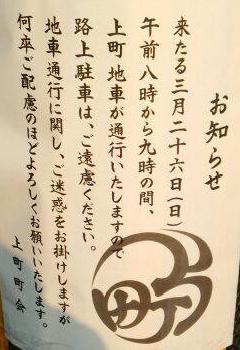 お知らせ
来たる三月二十六日(日)
午前八時から九時の間、
上町地車が通行いたしますので
路上駐車は、ご遠慮ください。
地車通行に関し、ご迷惑をお掛けしますが
何卒ご配慮のほどよろしくお願いいたします。
上町町会